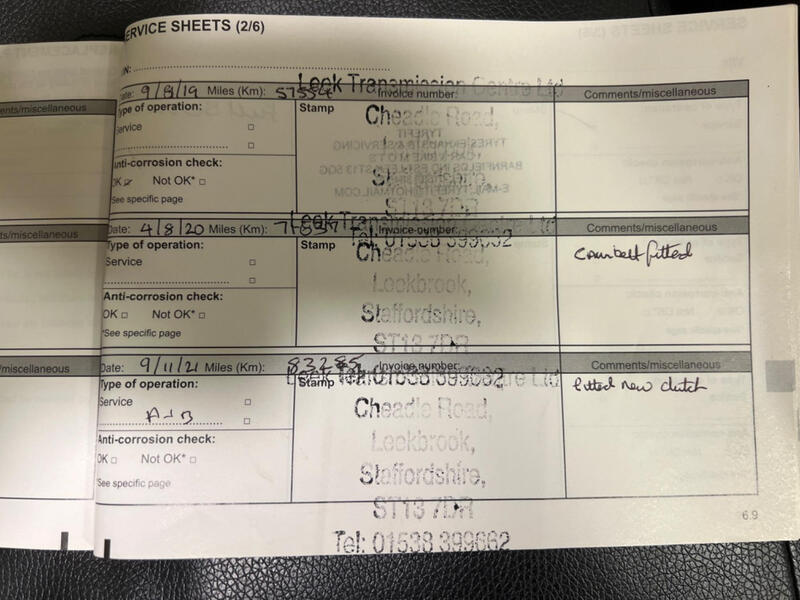 SERVICE SHEETS (2/6)
VIN:
Leek Transmission Centre Ltd
ents/miscellaneous
Date: 9/8/19 Miles (Km): 57554 Invoice number: Comments/miscellaneous
Type of operation:
Service
Stamp
Cheadle Road,
Anti-corrosion check:
OK Not OK*
*See specific page
Staffordshire,
ST13 7DR
nts/miscellaneous
Leek Transmission Centre Ltd
Date: 4/8/20 Miles (Km): Invoice number: Comments/miscellaneous
Tel: 01538 399662
Type of operation:
Service
Stamp
Cheadle Road,
Leekbrook,
Staffordshire,
ST13 7DR
Cambelt fitted
Anti-corrosion check:
OK Not OK*
*See specific page
/miscellaneous
Date: 9/11/21 Miles (Km): 83285 Invoice number: Comments/miscellaneous
Tel: 01538 399662
Type of operation:
Service
A+B
Stamp
Cheadle Road,
Leekbrook,
Staffordshire,
ST13 7DR
Tel: 01538 399662
fitted new clutch
Anti-corrosion check:
OK Not OK*
*See specific page
6.9